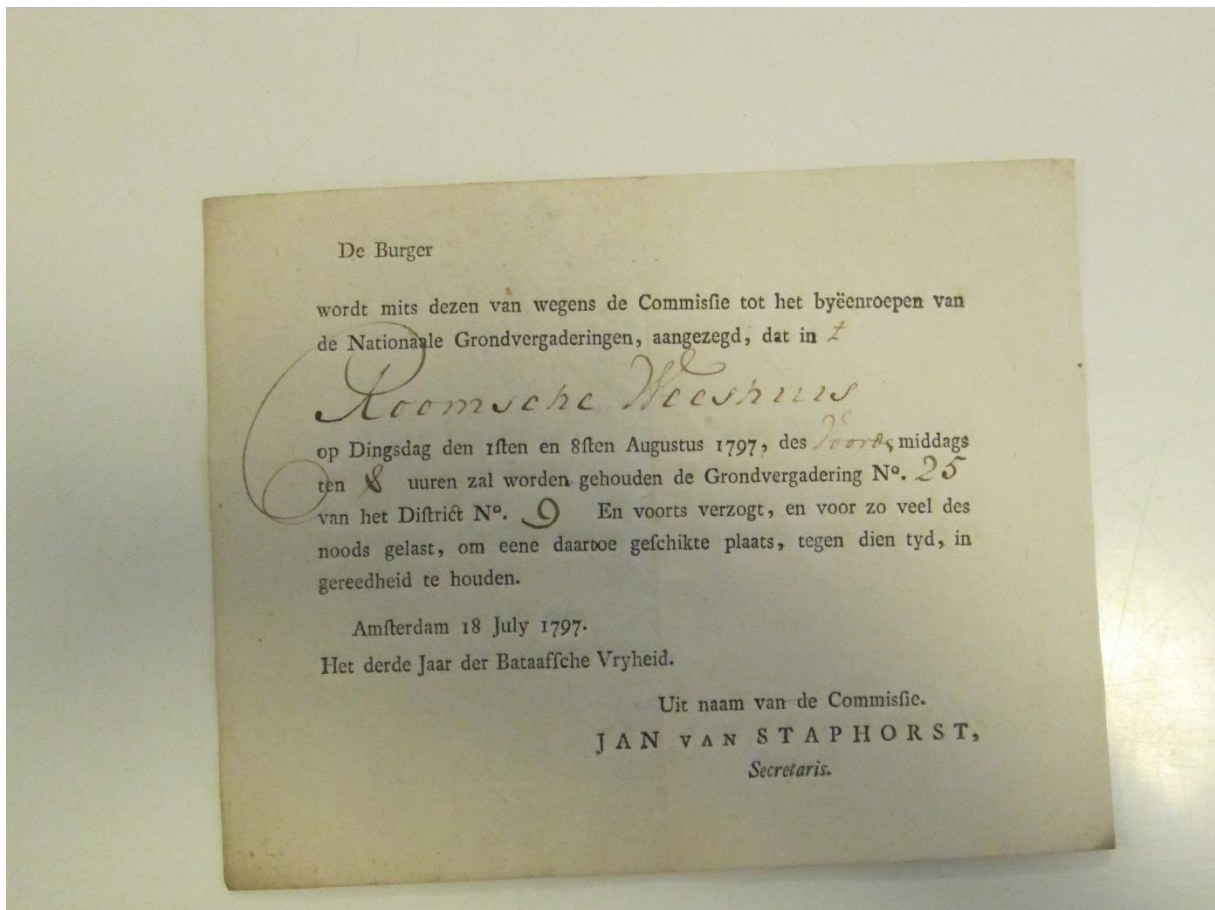 De Burger
wordt mits dezen van wegens de Commiſſie tot het byëenroepen van
de Nationaale Grondvergaderingen, aangezegd, dat in t
Roomsche Weeshuis
op Dingsdag den 1ſten en 8ſten Augustus 1797, des Voorde middags
ten 8 uuren zal worden gehouden de Grondvergadering Nº. 25
van het Diſtrict Nº. 9 En voorts verzogt, en voor zo veel des
noods gelast, om eene daartoe geſchikte plaats, tegen dien tyd, in
gereedheid te houden.
Amſterdam 18 July 1797.
Het derde Jaar der Bataafſche Vryheid.
Uit naam van de Commiſſie.
JAN VAN STAPHORST,
Secretaris.